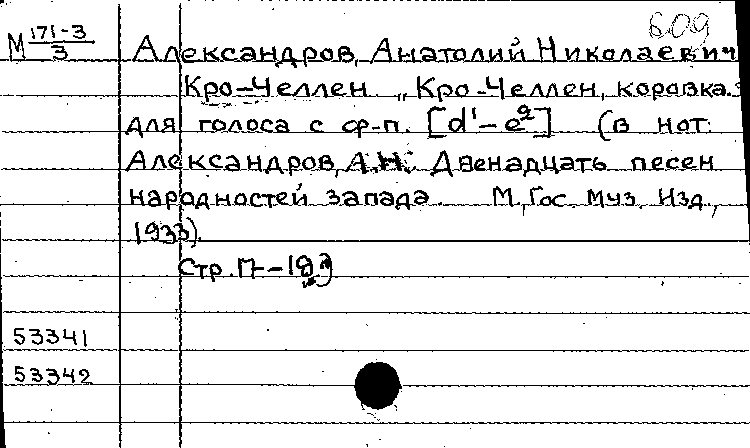 609
М 171-3/3
Александров, Анатолий Николаевич
Кро-Челлен. „Кро-Челлен, коровка."
для голоса с ф-п. [d¹-e²] (в нот:
Александров, А.Н. Двенадцать песен
народностей запада. М., Гос. Муз. Изд.,
1933).
Стр. 17-19
53341
53342